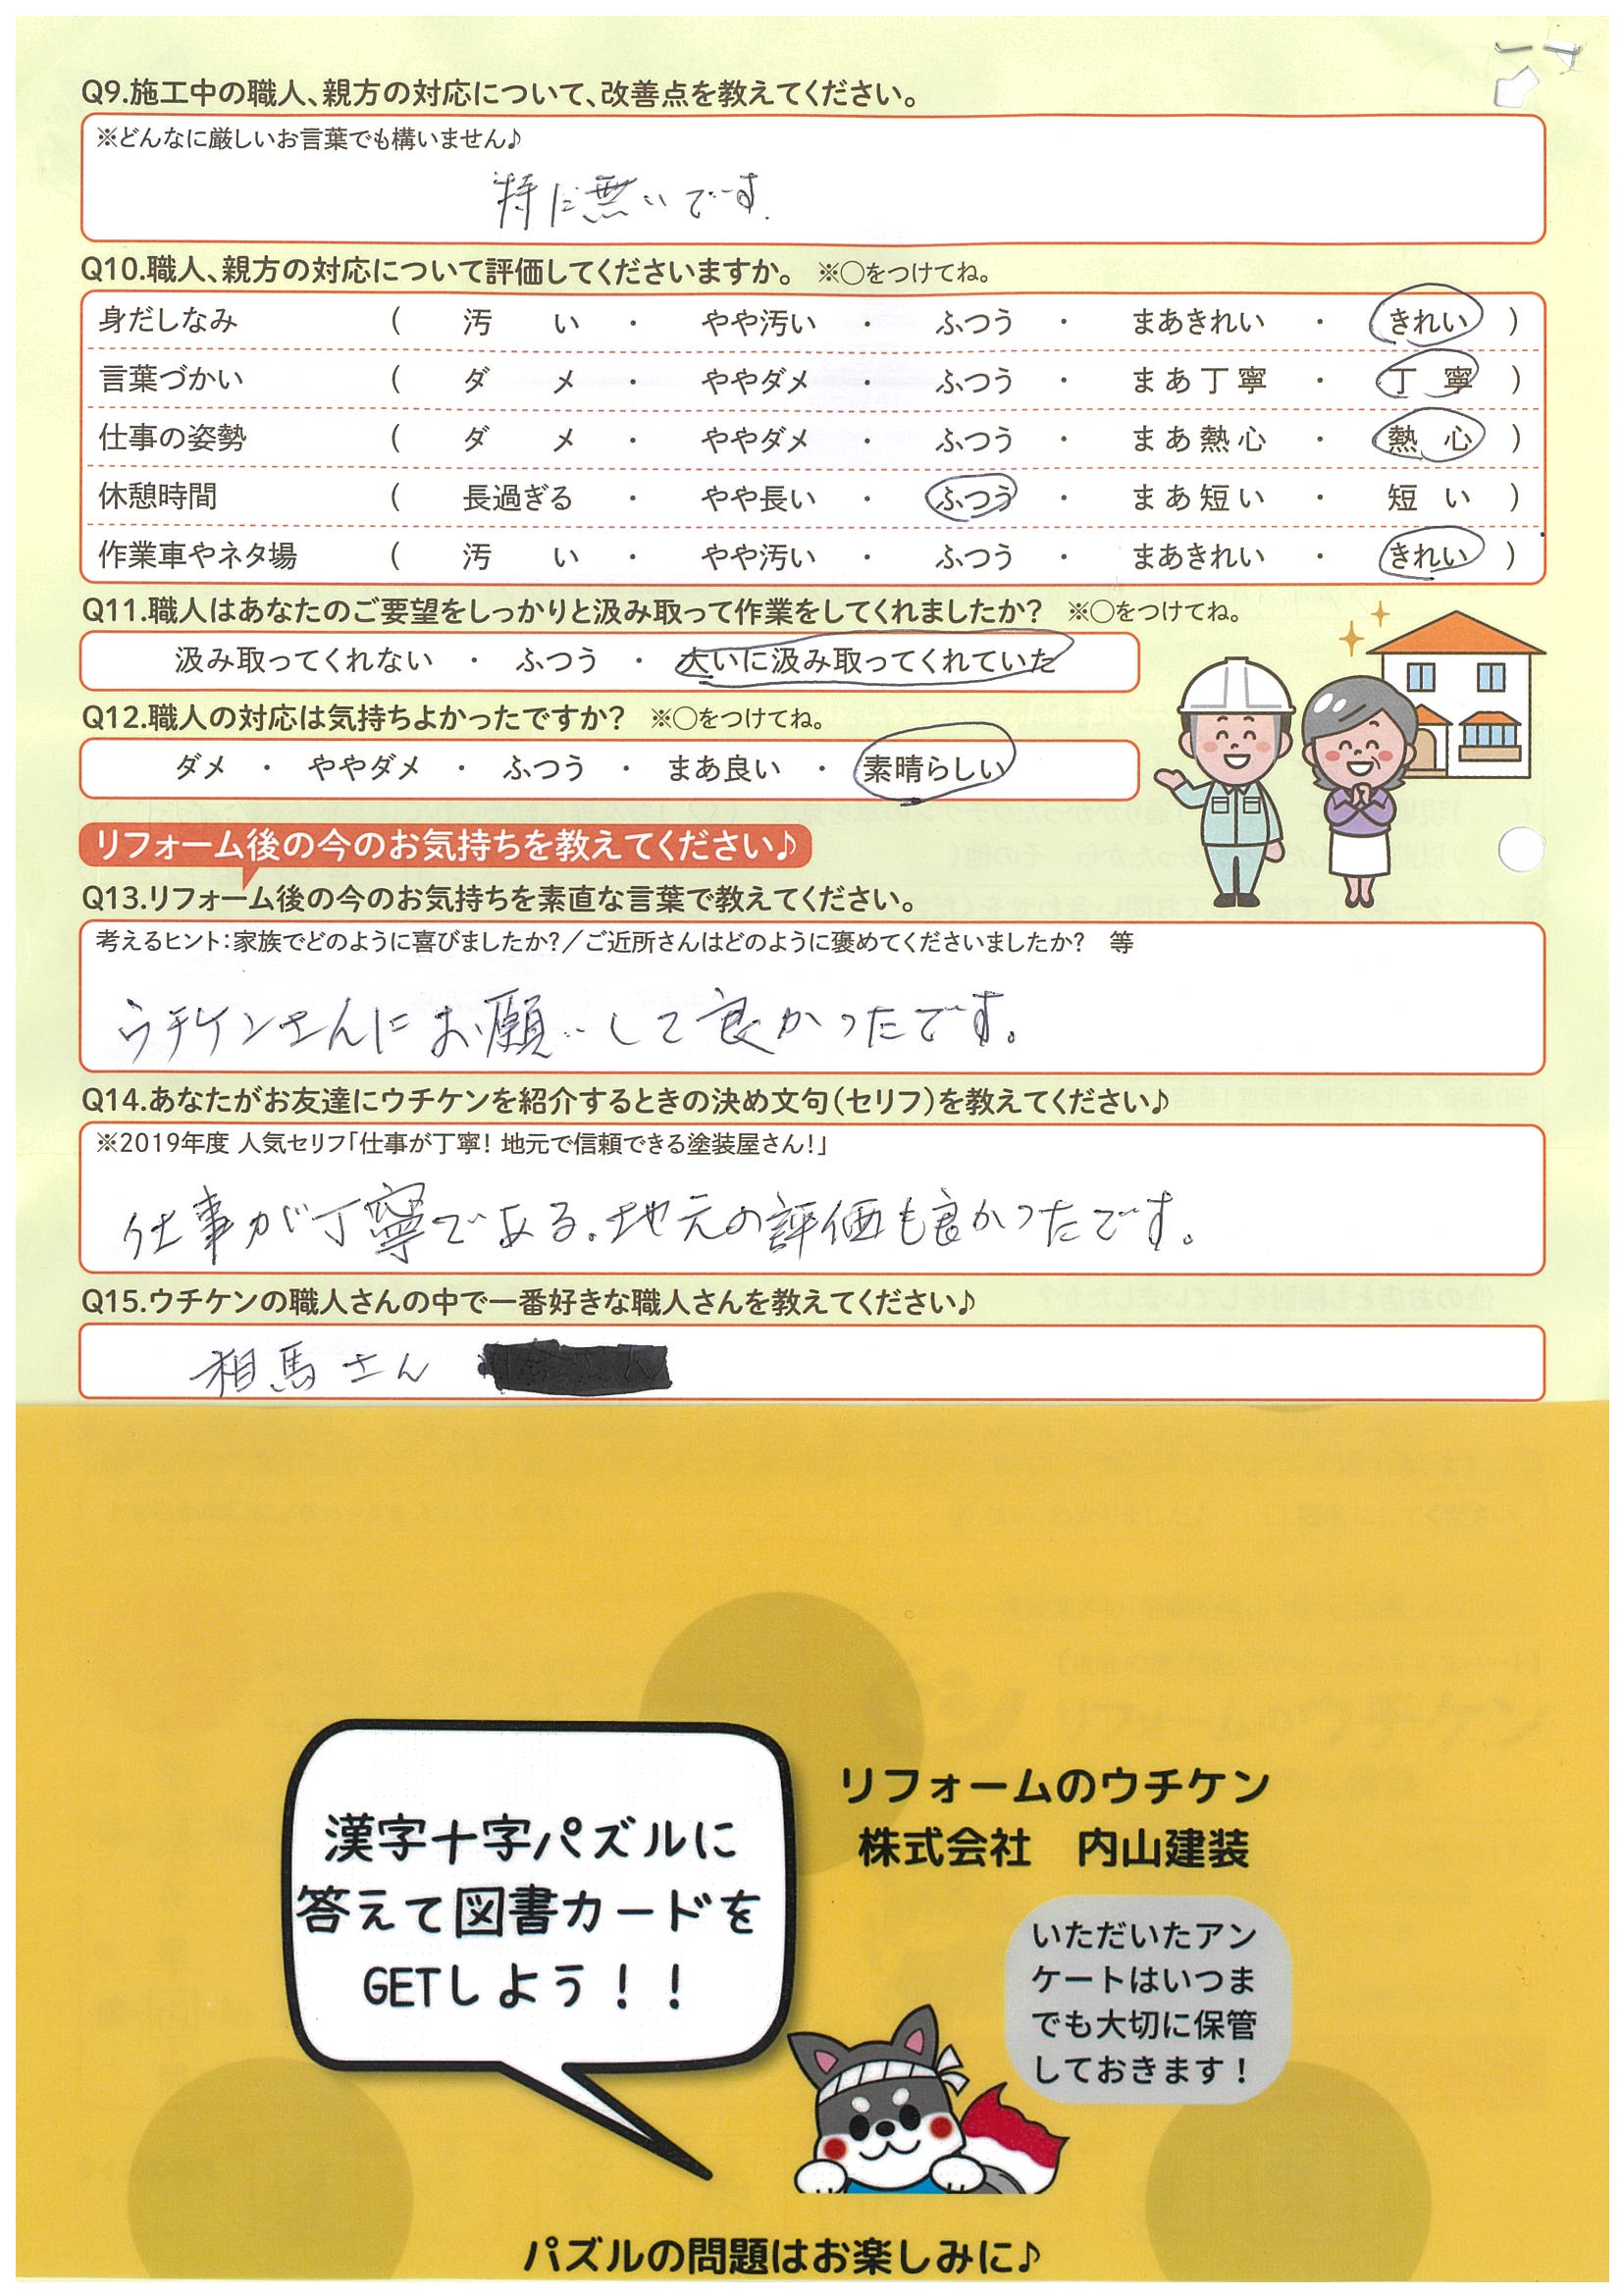 Q9.施工中の職人、親方の対応について、改善点を教えてください。
※どんなに厳しいお言葉でも構いません♪
特に無いです.
Q10.職人、親方の対応について評価してくださいますか。 ※○をつけてね。
身だしなみ ( 汚い ・ やや汚い ・ ふつう ・ まあきれい ・ きれい )
言葉づかい ( ダメ ・ ややダメ ・ ふつう ・ まあ丁寧 ・ 丁寧 )
仕事の姿勢 ( ダメ ・ ややダメ ・ ふつう ・ まあ熱心 ・ 熱心 )
休憩時間 ( 長過ぎる ・ やや長い ・ ふつう ・ まあ短い ・ 短い )
作業車やネタ場 ( 汚い ・ やや汚い ・ ふつう ・ まあきれい ・ きれい )
Q11.職人はあなたのご要望をしっかりと汲み取って作業をしてくれましたか? ※○をつけてね。
汲み取ってくれない ・ ふつう ・ 大いに汲み取ってくれていた
Q12.職人の対応は気持ちよかったですか? ※○をつけてね。
ダメ ・ ややダメ ・ ふつう ・ まあ良い ・ 素晴らしい
リフォーム後の今のお気持ちを教えてください♪
Q13.リフォーム後の今のお気持ちを素直な言葉で教えてください。
考えるヒント:家族でどのように喜びましたか?/ご近所さんはどのように褒めてくださいましたか? 等
ウチケンさんにお願いして良かったです。
Q14.あなたがお友達にウチケンを紹介するときの決め文句(セリフ)を教えてください♪
※2019年度 人気セリフ「仕事が丁寧! 地元で信頼できる塗装屋さん!」
仕事が丁寧である.地元の評価も良かったです。
Q15.ウチケンの職人さんの中で一番好きな職人さんを教えてください♪
相馬さん
漢字十字パズルに
答えて図書カードを
GETしよう!!
リフォームのウチケン
株式会社 内山建装
いただいたアン
ケートはいつま
でも大切に保管
しておきます!
パズルの問題はお楽しみに♪